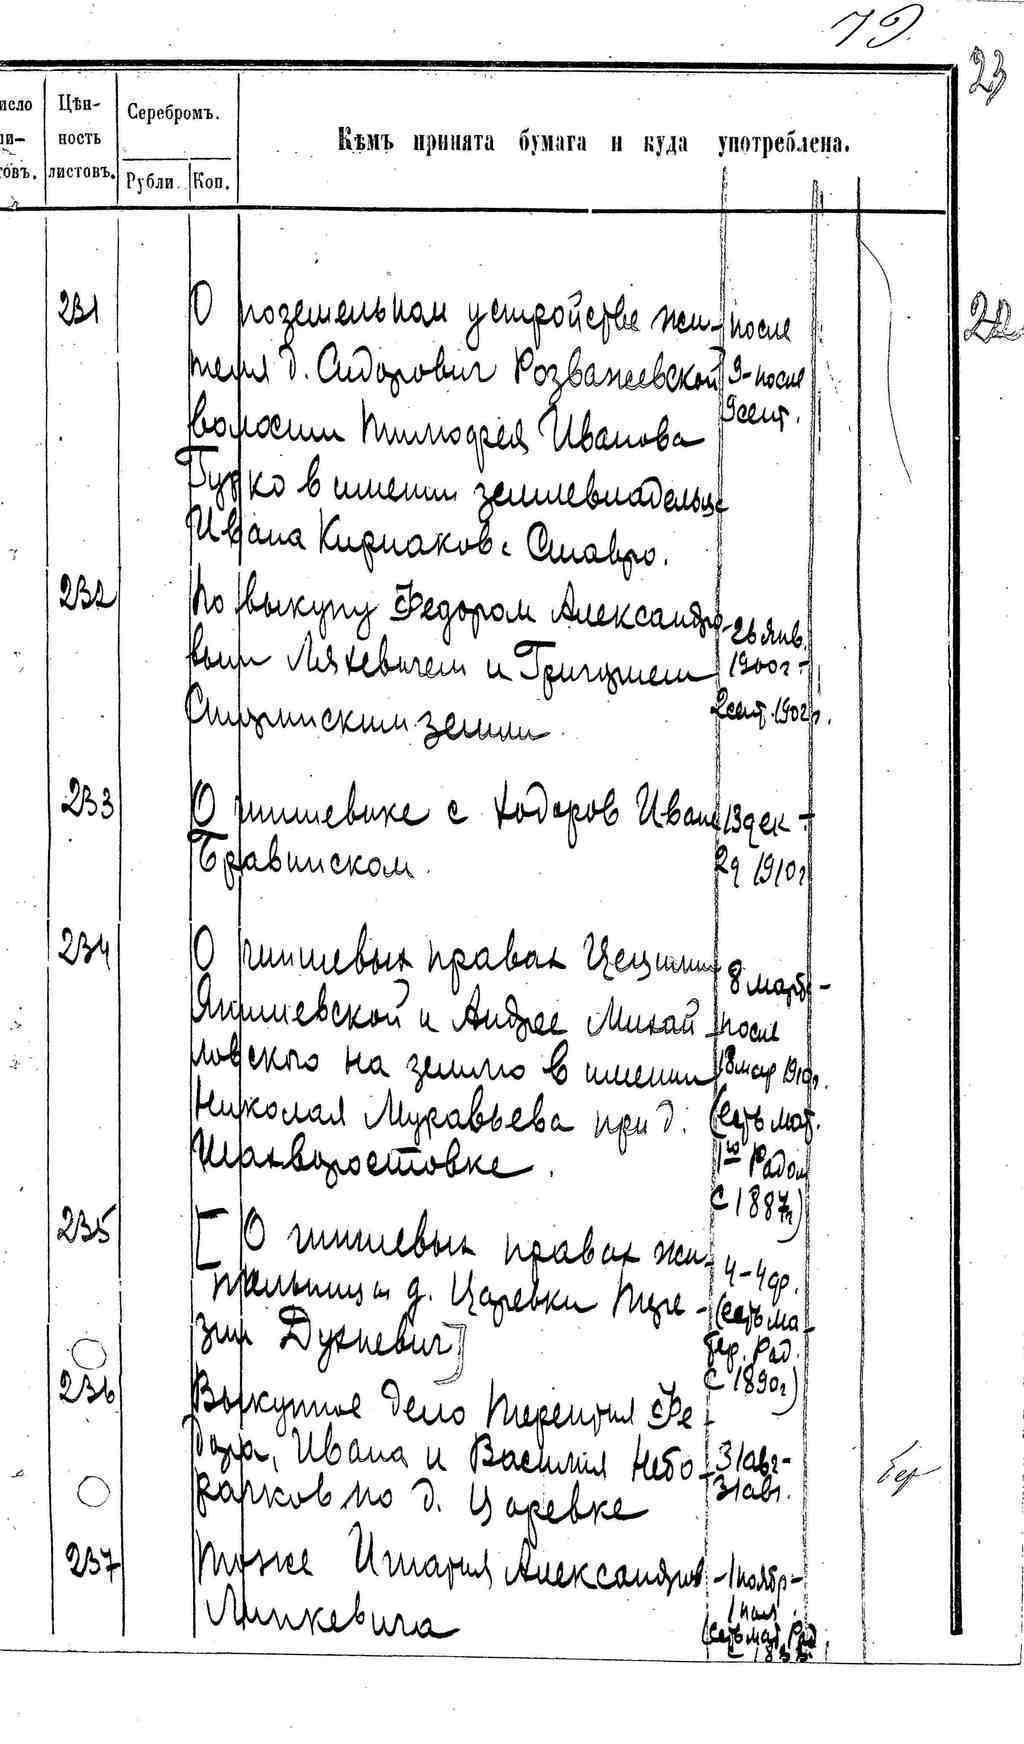 79
23
Цѣн-
ность
листовъ.
Серебромъ.
Рубли.
Коп.
Кѣмъ принята бумага и куда употреблена.
22
231
О поземельном устройстве жи-
теля д. Сидорович Розважевской
волости Тимофея Иванова
Гурко в имении землевладельца
Ивана Кириаков. Ставро.
после
9-после
9 сент.
232
По выкупу Федором Александро-
вым Ляхевичем и Григорием
землi
26 янв.
1900 г -
2 сент. 1902 г.
233
О чиншевике с Ходоров Иване
13 дек -
29 1910 г
234
О чиншевых правах Цецилии
и Андрее Михай-
ловского на землю в имении
Николая Муравьева при д.
Шахворостовке.
8 март -
после
18 мар 1910 г.
(есть мат.
с 1887 г)
235
[О чиншевых правах жи-
тельницы д. Царевки Тере-
зии Духневич]
4-4 ф.
(есть ма-
тер. Рад.
с 1890 г)
236
Выкупное дело Терентия Фе-
дора, Ивана и Василия Небо-
рачков по д. Царевке
31 авг -
31 авг.
237
Тоже Игнатия Александров
Липкевича
- 1 ноябр -
(есть мат. Рад